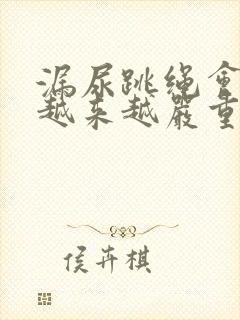 漏尿跳绳会
越来越严重
侯卉棋